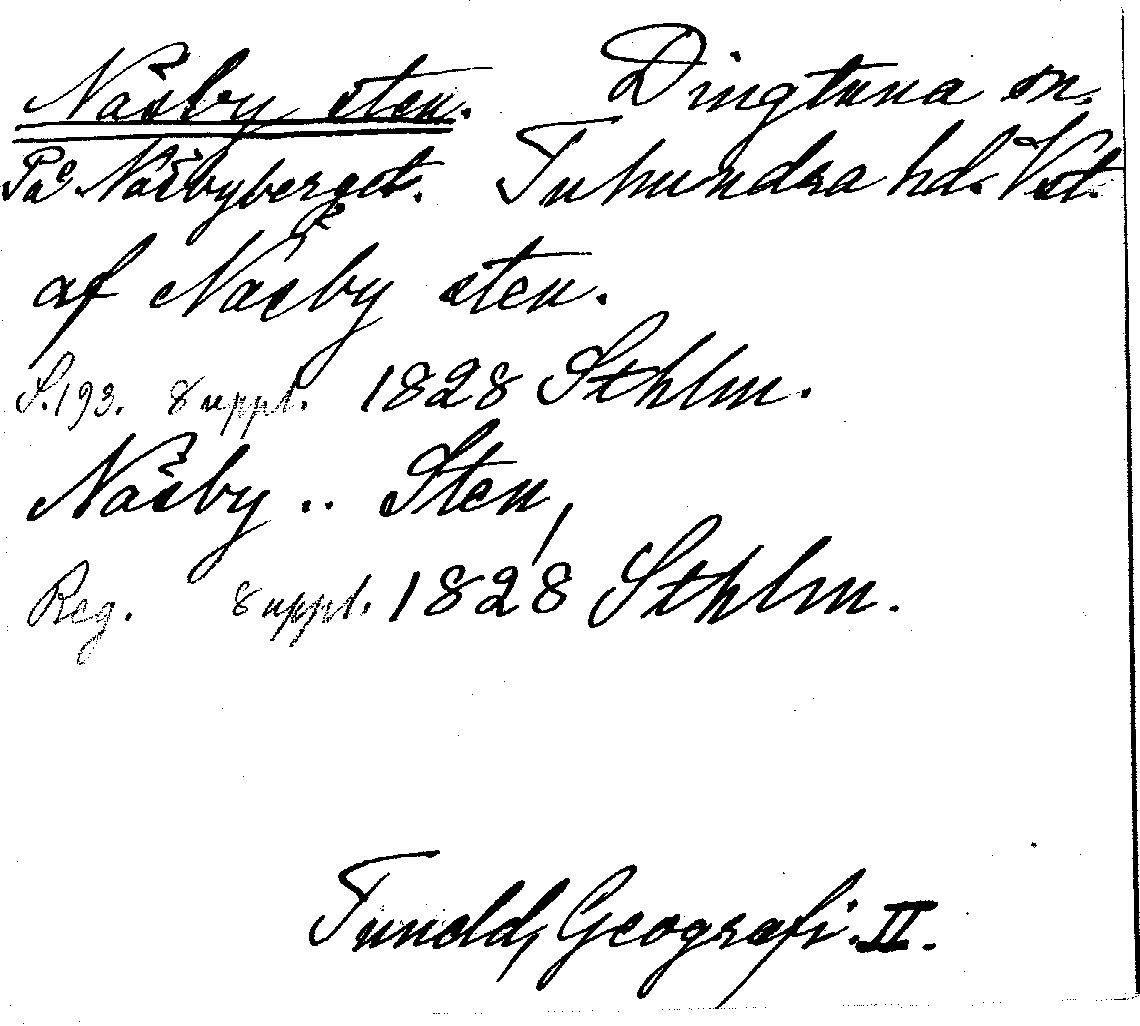 Näsby sten. Dingtuna sn.
På Näsbyberget. Tuhundra hd. Vstm.
af Näsby sten.
S. 193. 8 uppl. 1828 Sthlm.
Näsby .. Sten,
Reg. 8 uppl. 1828 Sthlm.
Tuneld, Geografi. II.